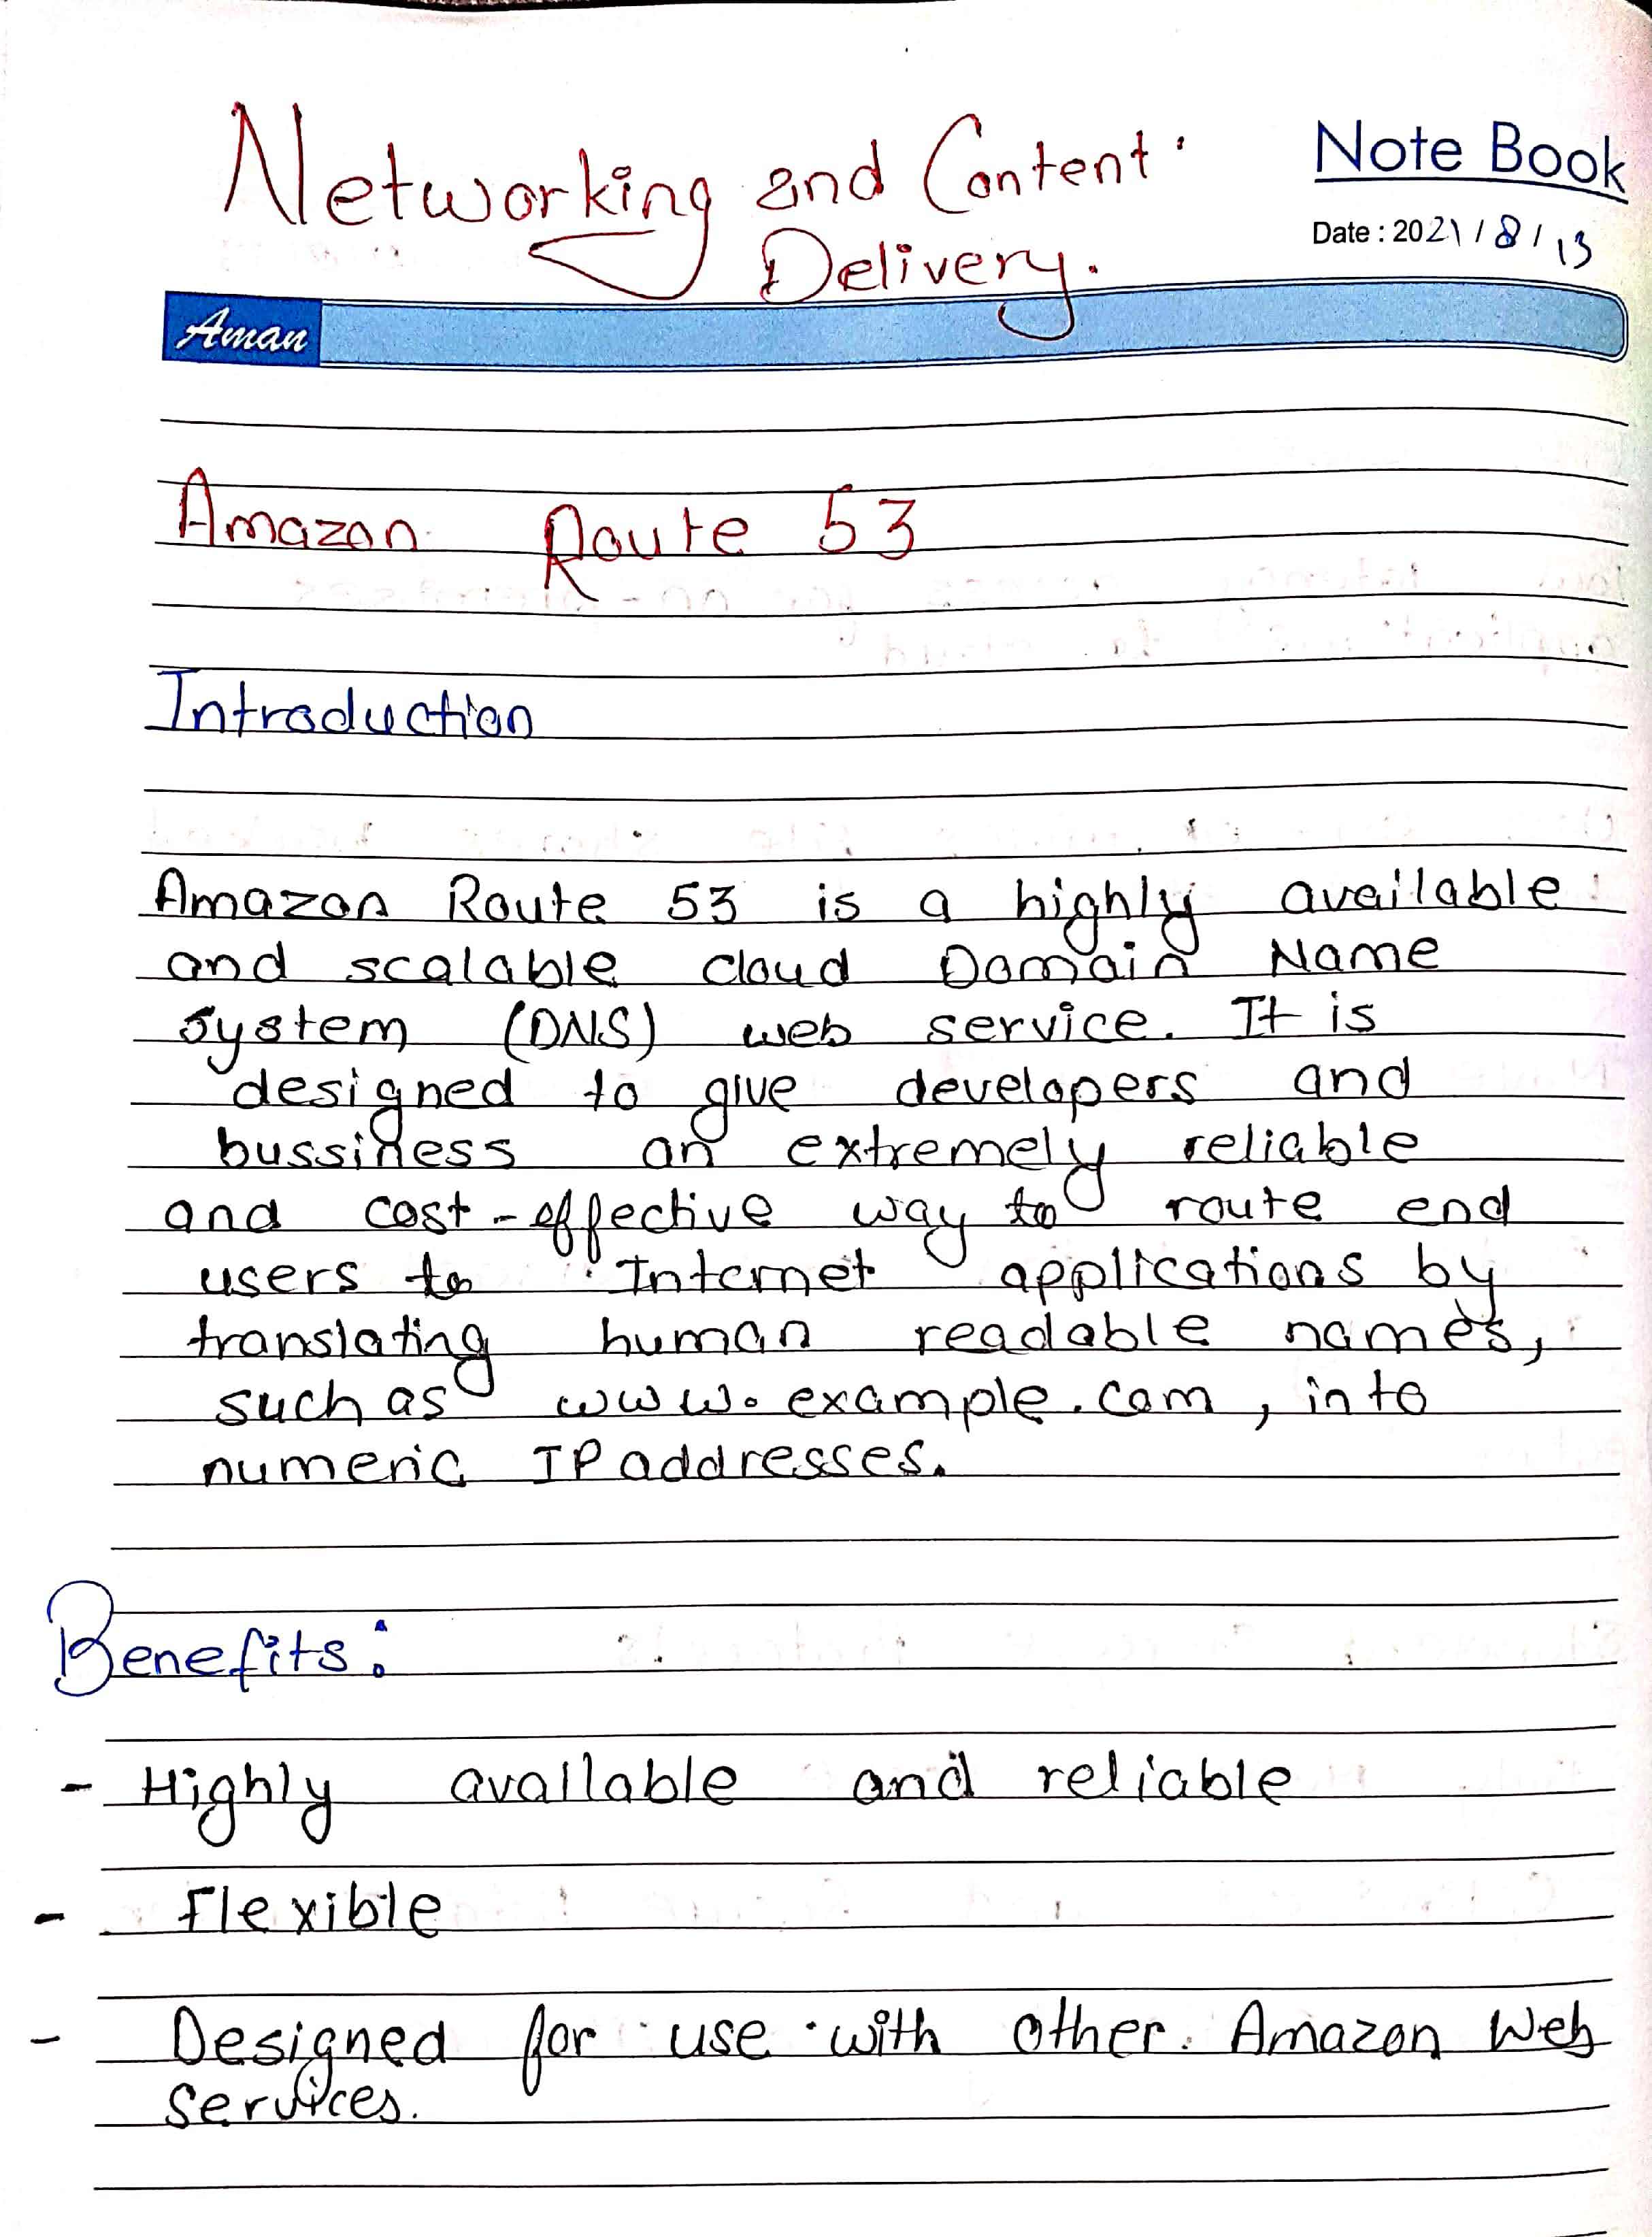 Networking and Content
Delivery.
Note Book
Date : 2021 / 8 / 13
Aman
Amazon Route 53
Introduction
Amazon Route 53 is a highly available
and scalable cloud Domain Name
System (DNS) web service. It is
designed to give developers and
bussiness an extremely reliable
and cost-effective way to route end
users to Internet applications by
translating human readable names,
such as www.example.com, into
numeric IP addresses.
Benefits:
- Highly available and reliable
- Flexible
- Designed for use with other Amazon Web
services.